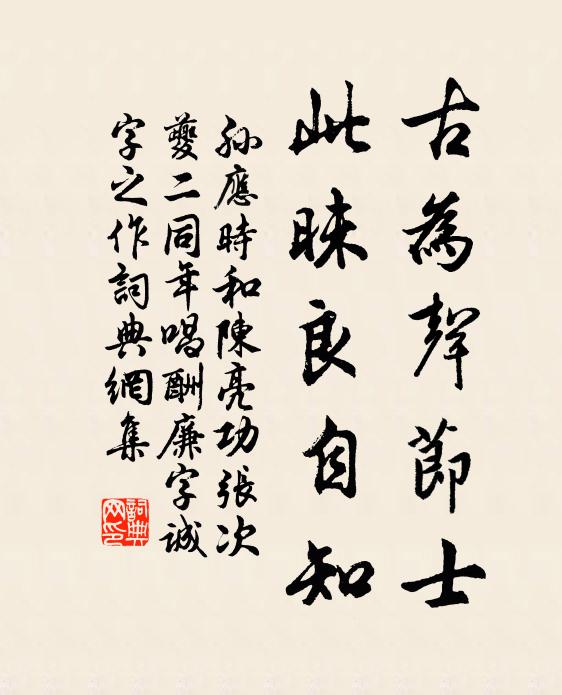 古為聲節士
此昧良自知
孫應時和陳亮功張次
夔二同年唱酬廉字誠
字之作詞典網集
詞典网印